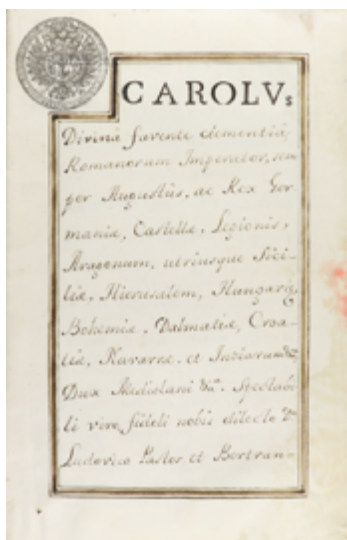 CAROLVs
Divinâ favente clementiâ,
Romanorum Imperator, sem
per Augustus, ac Rex Ger
maniæ, Castellæ, Legionis,
Aragonum, utriusque Sici-
liæ, Hierusalem, Hungariæ,
Bohemiæ, Dalmatiæ, Croa-
tiæ, Navarræ et Indiarum &c,
Dux Mediolani &c. Spectabi
li viro fideli nobis dilecto Dn
Ludovico Pastor et Bertran-